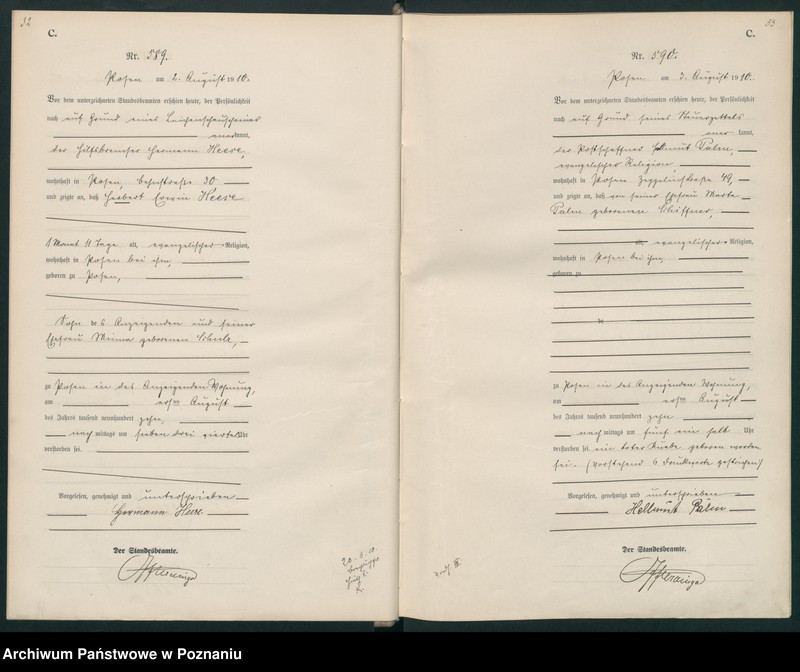 32
C.
Nr. 589.
Posen am 2. August 1910.
Vor dem unterzeichneten Standesbeamten erschien heute, der Persönlichkeit
nach auf Grund eines Leichenschauscheines
anerkannt,
der Hilfsbremser Hermann Heese,
wohnhaft in Posen, 30
und zeigte an, daß Herbert Erwin Heese
1 Monat 11 Tage alt, evangelischer Religion,
wohnhaft in Posen bei ihm,
geboren zu Posen,
Sohn des Anzeigenden und seiner
Ehefrau Minna geborenen
zu Posen in des Anzeigenden Wohnung,
am ersten August
des Jahres tausend neunhundert zehn,
nachmittags um sieben drei viertel Uhr
verstorben sei.
Vorgelesen, genehmigt und unterschrieben
Hermann Heese
Der Standesbeamte.
33
C.
Nr. 590.
Posen am 3. August 1910.
Vor dem unterzeichneten Standesbeamten erschien heute, der Persönlichkeit
nach auf Grund seines Steuerzettels
anerkannt,
der Postschaffner Helmut Palm,
evangelischer Religion,
wohnhaft in Posen Zeppelinstraße 49,
und zeigte an, daß von seiner Ehefrau Marta
Palm geborenen Schiffner,
alt, evangelischer Religion,
wohnhaft in Posen bei ihm,
geboren zu
de
zu Posen in des Anzeigenden Wohnung,
am ersten August
des Jahres tausend neunhundert zehn
nachmittags um fünf ein halb Uhr
verstorben sei ein toter Knabe geboren worden
sei. (Vorstehend 6 Druckworte gestrichen)
Vorgelesen, genehmigt und unterschrieben
Hellmut Palm
Der Standesbeamte.
Archiwum Państwowe w Poznaniu